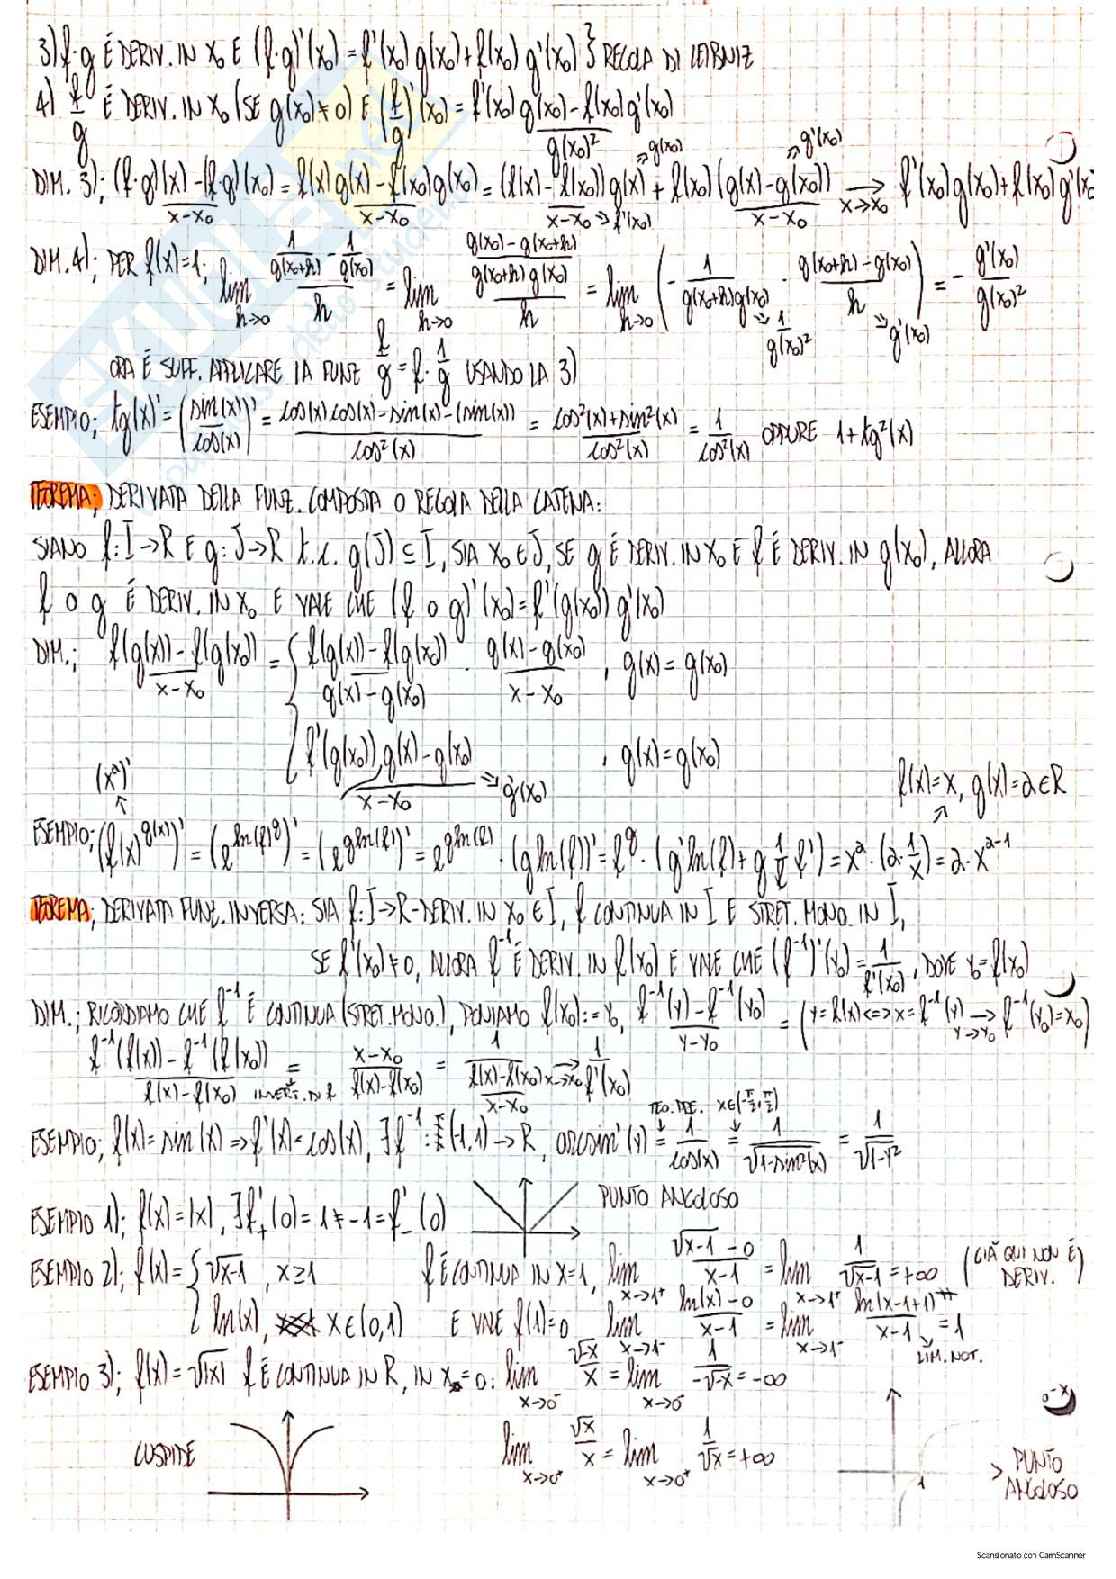 3) f·g È DERIV. IN x₀ E (f·g)'(x₀) = f'(x₀) g(x₀) + f(x₀) g'(x₀) } REGOLA DI LEIBNIZ
4) f/g È DERIV. IN x₀ (SE g(x₀) ≠ 0) E (f/g)'(x₀) = (f'(x₀) g(x₀) - f(x₀) g'(x₀))/g(x₀)²
DIM. 3); ((f·g)(x) - (f·g)(x₀))/(x-x₀) = (f(x)g(x) - f(x₀)g(x₀))/(x-x₀) = (f(x) - f(x₀))/(x-x₀) → f'(x₀) g(x) → g(x₀) + f(x₀) (g(x) - g(x₀))/(x-x₀) → g'(x₀) → x→x₀ f'(x₀)g(x₀) + f(x₀)g'(x₀
DIM. 4); PER f(x)=1; lim h→0 (1/g(x₀+h) - 1/g(x₀))/h = lim h→0 ((g(x₀) - g(x₀+h))/(g(x₀+h) g(x₀)))/h = lim h→0 (- 1/(g(x₀+h)g(x₀)) → 1/g(x₀)² · (g(x₀+h) - g(x₀))/h → g'(x₀)) = - g'(x₀)/g(x₀)²
ORA È SUFF. APPLICARE LA FUNZ f/g = f · 1/g USANDO LA 3)
ESEMPIO; tg(x)' = (sin(x)/cos(x))' = (cos(x) cos(x) - sin(x) - (sin(x)))/cos²(x) = (cos²(x) + sin²(x))/cos²(x) = 1/cos²(x) OPPURE 1 + tg²(x)
TEOREMA; DERIVATA DELLA FUNZ. COMPOSTA O REGOLA DELLA CATENA:
SIANO f: I→R E g: J→R t.c. g(J) ⊆ I, SIA x₀ ∈ J, SE g È DERIV. IN x₀ E f È DERIV. IN g(x₀), ALLORA
f o g È DERIV. IN x₀ E VALE CHE (f o g)'(x₀) = f'(g(x₀)) g'(x₀)
DIM.; (f(g(x)) - f(g(x₀)))/(x-x₀) = { (f(g(x)) - f(g(x₀)))/(g(x) - g(x₀)) · (g(x) - g(x₀))/(x-x₀) , g(x) = g(x₀)
f'(g(x₀)), (g(x) - g(x₀))/(x-x₀) → g'(x₀) , g(x) = g(x₀)
(x^a)' f(x) = x, g(x) = a ∈ R
ESEMPIO; (f(x)^g(x))' = (e^ln(f)^g)' = (e^g ln(f))' = e^g ln(f) · (g ln(f))' = f^g · (g' ln(f) + g 1/f f') = x^a · (a · 1/x) = a · x^(a-1)
TEOREMA; DERIVATA FUNZ. INVERSA: SIA f: I→R - DERIV. IN x₀ ∈ I, f CONTINUA IN I E STRET. MONO. IN I,
SE f'(x₀) ≠ 0, ALLORA f⁻¹ È DERIV. IN f(x₀) E VALE CHE (f⁻¹)'(y₀) = 1/f'(x₀), DOVE y₀ = f(x₀)
DIM.; RICORDIAMO CHE f⁻¹ È CONTINUA (STRET. MONO.), PONIAMO f(x₀) := y₀, (f⁻¹(y) - f⁻¹(y₀))/(y-y₀) = (y = f(x) <=> x = f⁻¹(y) → y→y₀ f⁻¹(y₀) = x₀)
(f⁻¹(f(x)) - f⁻¹(f(x₀)))/(f(x) - f(x₀)) = INVERT. DI f (x-x₀)/(f(x) - f(x₀)) = 1/((f(x) - f(x₀))/(x-x₀)) → x→x₀ 1/f'(x₀)
TEO. PRE. x∈(-π/2, π/2)
ESEMPIO; f(x) = sin(x) => f'(x) = cos(x), ∃ f⁻¹: (-1,1) → R, arcsin'(y) = 1/cos(x) = 1/√(1-sin²(x)) = 1/√(1-y²)
ESEMPIO 1); f(x) = |x|, ∃ f'₊(0) = 1 ≠ -1 = f'₋(0) PUNTO ANGOLOSO
ESEMPIO 2); f(x) = { √(x-1) , x ≥ 1 f È CONTINUA IN x=1, lim x→1⁺ (√(x-1) - 0)/(x-1) = lim x→1⁺ 1/√(x-1) = +∞ (GIÀ QUI NON È DERIV.)
ln(x), x ∈ (0,1) E VALE f(1)=0 lim x→1⁻ (ln(x) - 0)/(x-1) = lim x→1⁻ ln(x-1+1)/(x-1) = 1 LIM. NOT.
ESEMPIO 3); f(x) = √|x| f È CONTINUA IN R, IN x=0: lim x→0⁻ √-x/x = lim x→0⁻ 1/-√-x = -∞
CUSPIDE lim x→0⁺ √x/x = lim x→0⁺ 1/√x = +∞
1 > PUNTO ANGOLOSO
Scansionato con CamScanner